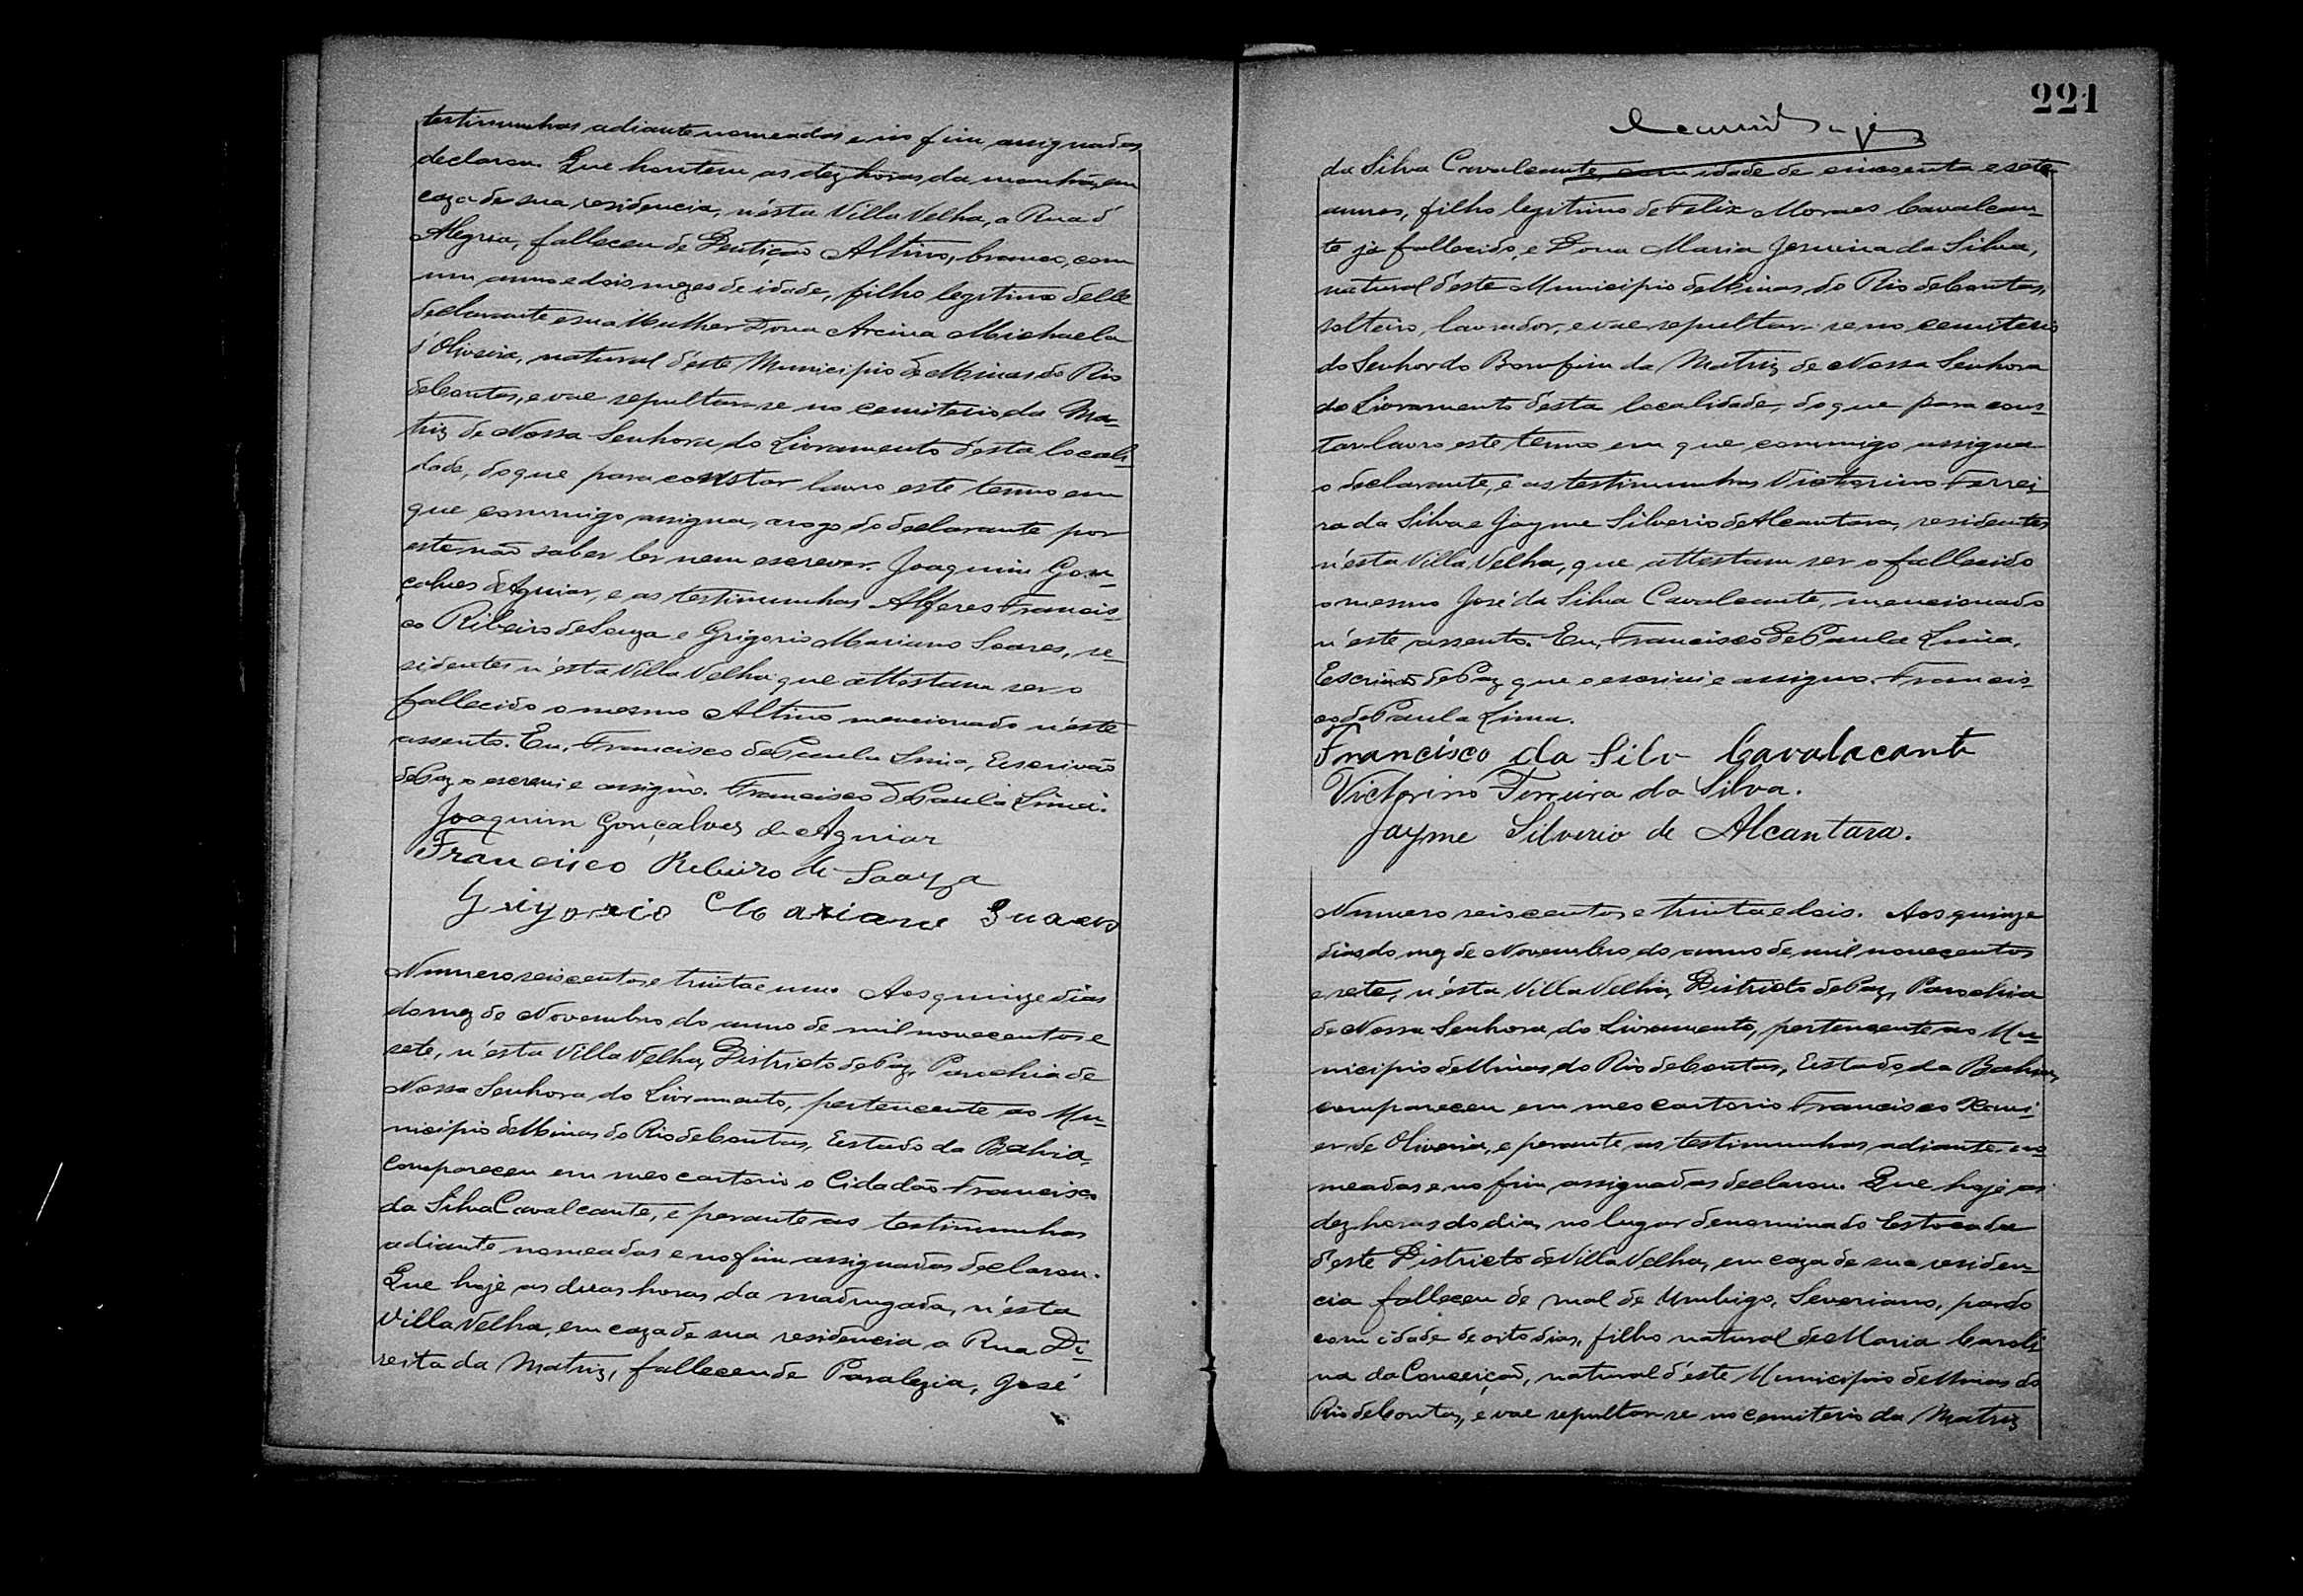 testimunhas adiante nomeadas e no fim assignadas
declarou. Que hontem as dez horas da manhã, em
caza de sua residencia, n'ésta Villa Velha, a Rua d'
Alegria, falleceu de Dentição Altino, branco, com
um anno e dois mezes de idade, filho legitimo delle
declarante e sua Mulher Dona Arcina Michaela
d'Oliveira, natural d'este Municipio de Minas do Rio
de Contas, e vae sepultar-se no cemiterio da Ma-
triz de Nossa Senhora do Livramento d'ésta locali-
dade, do que para constar lavro este termo em
que commigo assigna, a rogo do declarante por
este não saber ler nem escrever. Joaquim Gon-
çalves de Aguiar, e as testimunhas Alferes Francis-
co Ribeiro de Souza e Grigorio Mariano Soares, re-
sidentes n'ésta Villa Velha que attestam ser o
fallecido o mesmo Altino mencionado n'éste
assento. Eu, Francisco de Paula Lima, Escrivão
de Paz o escrevi e assigno. Francisco de Paula Lima.
Joaquim Gonçalves de Aguiar
Francisco Ribeiro de Souza
Grigorio Mariano Suares
Numero seiscentos e trinta e um. Aos quinze dias
do mez de Novembro do anno de mil novecentos e
sete, n'ésta Villa Velha, Districto de Paz, Parochia de
Nossa Senhora do Livramento, pertencente ao Mu-
nicipio de Minas do Rio de Contas, Estado da Bahia,
compareceu em meo cartorio o Cidadão Francisco
da Silva Cavalcante, e perante as testimunhas
adiante nomeadas e no fim assignadas declarou.
Que hoje as duas horas da madrugada, n'ésta
Villa Velha, em caza de sua residencia a Rua Di-
reita da Matriz, falleceu de Paralezia, José
221
da Silva Cavalcante, com idade de cincoenta e sete
annos, filho legitimo de Felix Moraes Cavalcan-
te já fallecido, e Dona Maria Jesuina da Silva,
natural d'éste Municipio de Minas do Rio de Contas,
solteiro, lavrador, e vae sepultar-se no cemiterio
do Senhor do Bomfim da Matriz de Nossa Senhora
do Livramento desta localidade, do que para cons-
tar lavro este termo em que commigo assigna
o declarante, e as testimunhas Victorino Ferrei-
ra da Silva e Jayme Silverio de Alcantara, residentes
n'ésta Villa Velha, que attestam ser o fallecido
o mesmo José da Silva Cavalcante, mencionado
n'éste assento. Eu, Francisco de Paula Lima,
Escrivão de Paz que o escrivi e assigno. Francis-
co de Paula Lima.
Francisco da Silv Cavalacant
Victorino Ferreira da Silva.
Jayme Silverio de Alcantara.
Numero seiscentos e trinta e dois. Aos quinze
dias do mez de Novembro do anno de mil novecentos
e sete, n'ésta Villa Velha, Districto de Paz, Parochia
de Nossa Senhora do Livramento, pertencente ao Mu-
nicipio de Minas do Rio de Contas, Estado da Bahia,
compareceu em meo cartorio Francisco Xavi-
er de Oliveira, e perante as testimunhas adiante no-
meadas e no fim assignadas declarou. Que hoje as
dez horas do dia, no lugar denominado Estocada
d'este Districto de Villa Velha, em caza de sua residen-
cia falleceu de mal de Umbigo, Severiano, pardo
com idade de oito dias, filho natural de Maria Caroli-
na da Conceição, natural d'éste Municipio de Minas do
Rio de Contas, e vae sepultar-se no cemiterio da Matriz